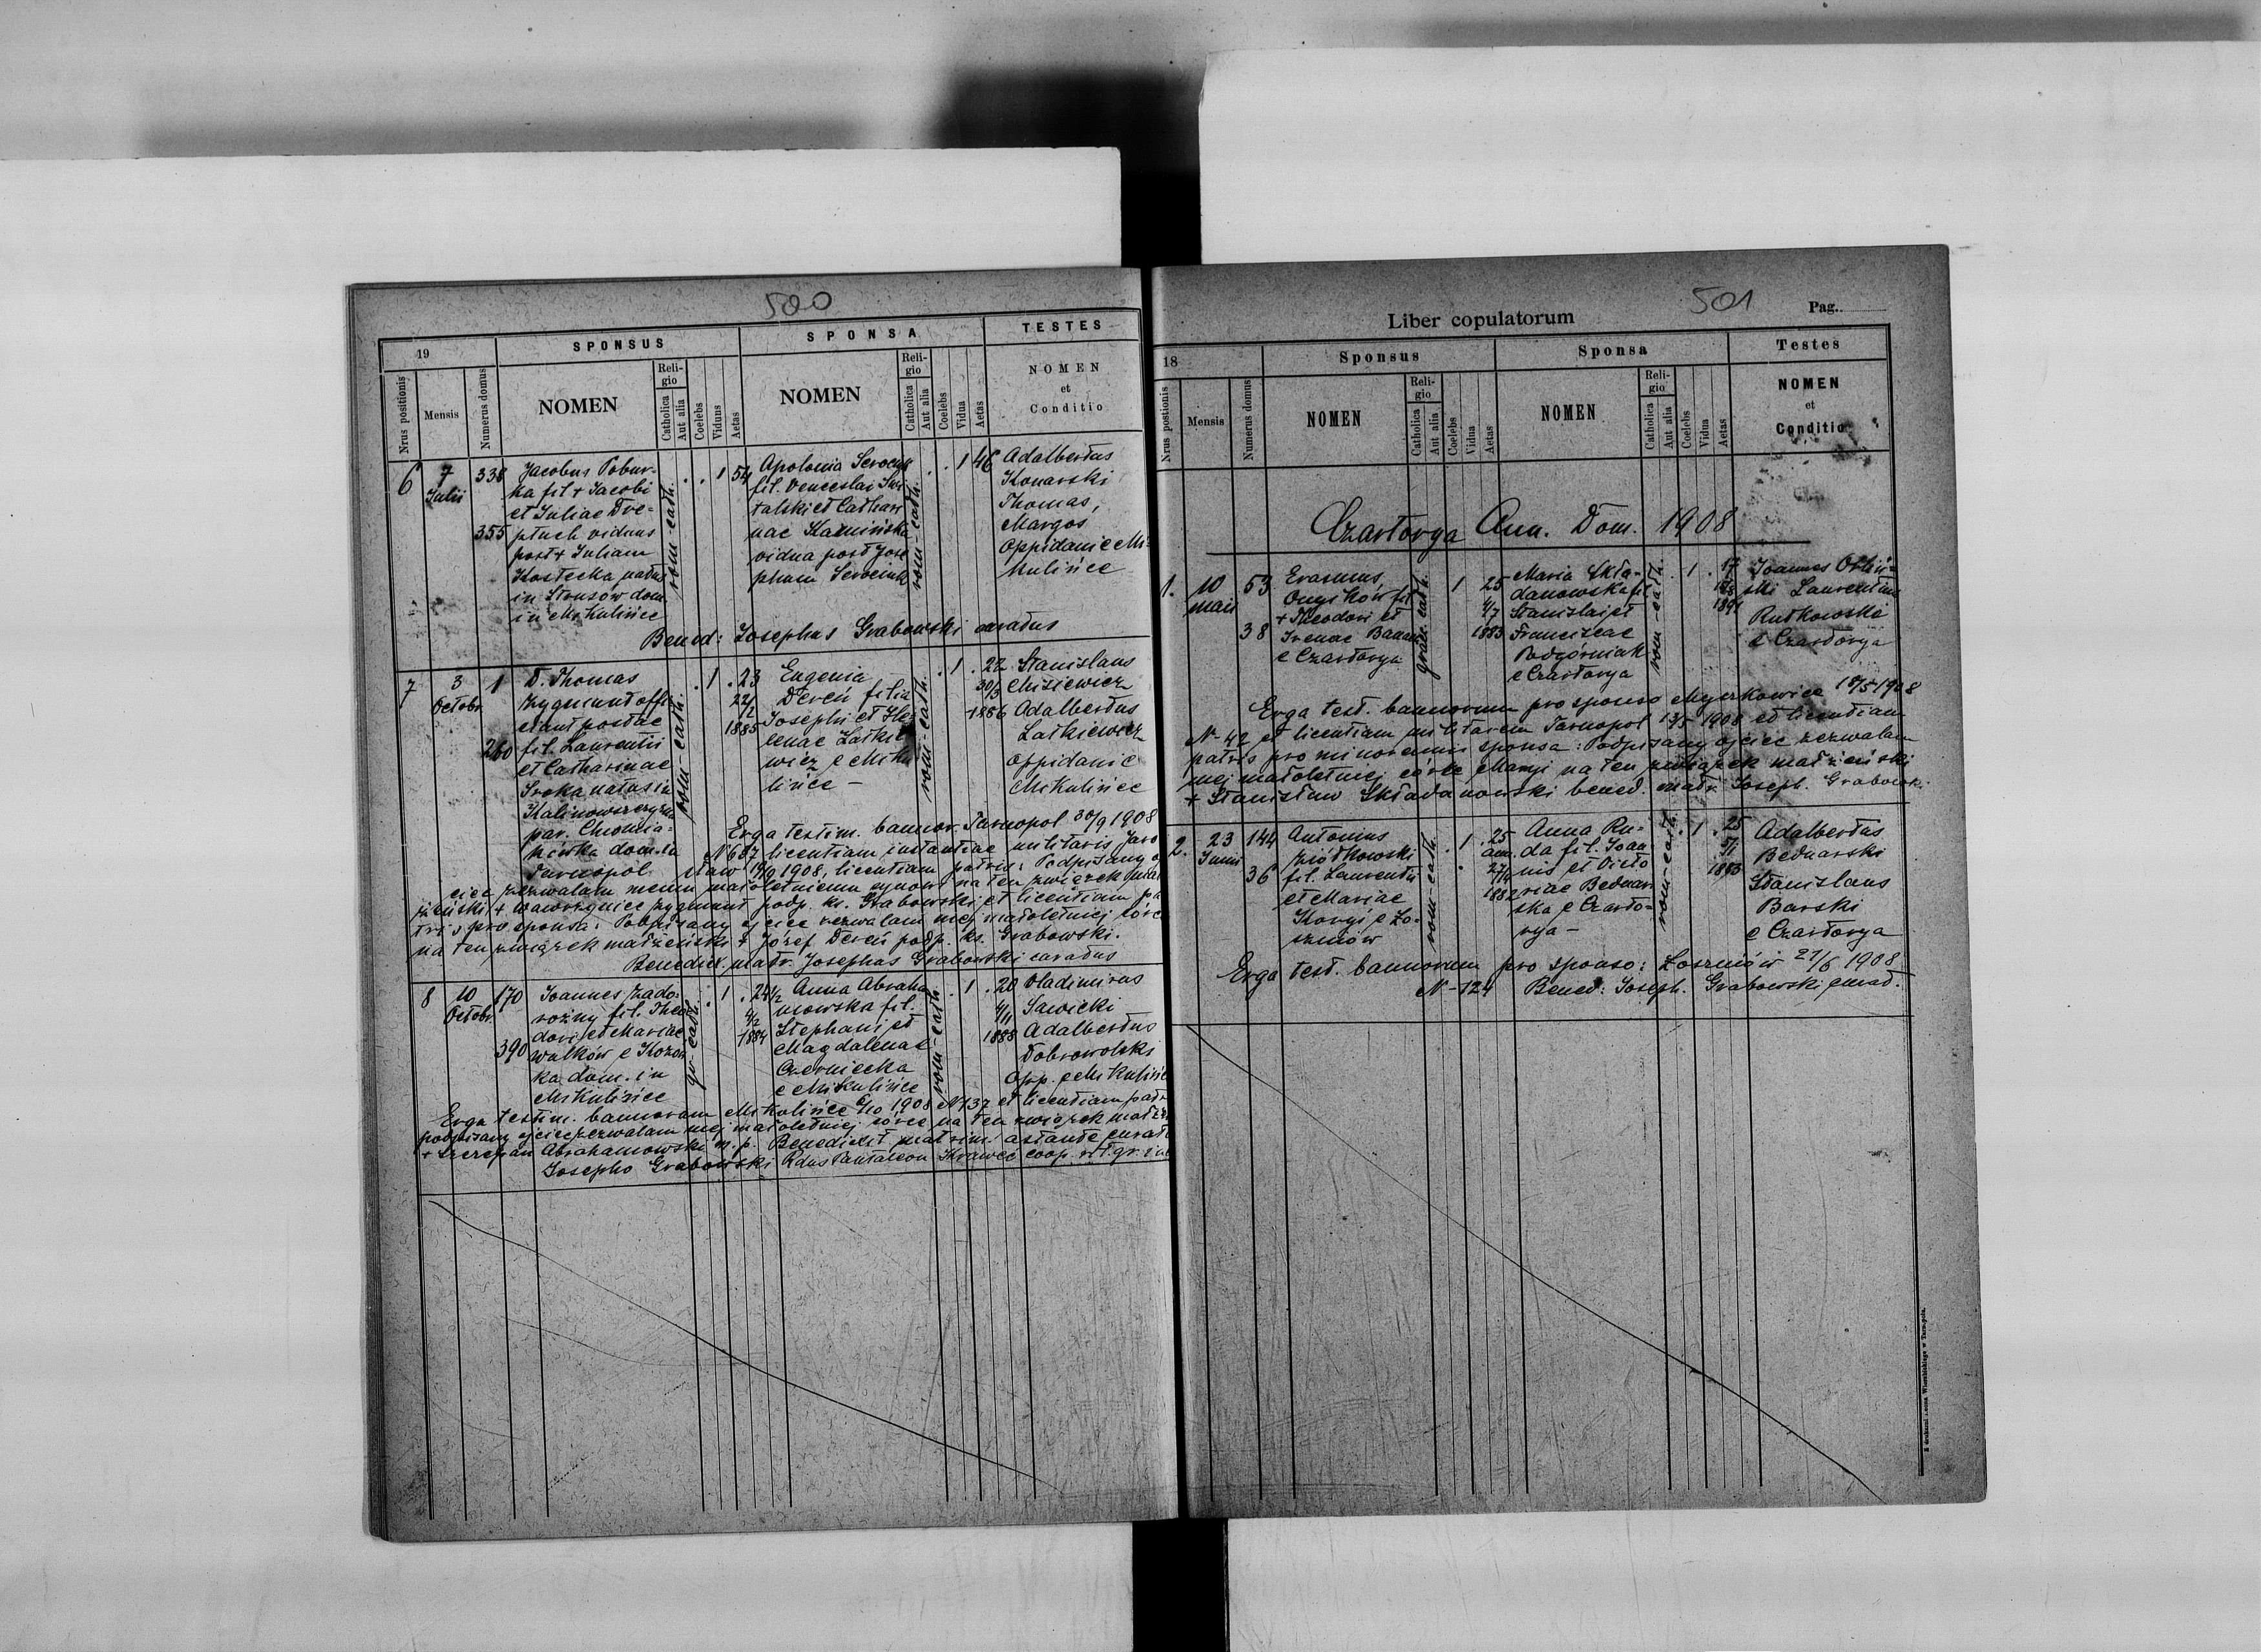 500
19
SPONSUS
SPONSA
TESTES
Nrus positionis
Mensis
Numerus domus
NOMEN
Religio
Catholica
Aut alia
Coelebs
Viduus
Aetas
NOMEN
Religio
Catholica
Aut alia
Coelebs
Vidua
Aetas
NOMEN
et
Conditio
6
7
Julii
338
355
Jacobus Pobur-
ka fil + Jacobi
et Juliae Dre-
ptuch viduus
post + Juliam
Kostecka natus
in Strusów dom.
in Mikulińce
rom-cath.
. . 1 54
Apolonia Serociuk
fil. Venceslai
talski et Cathari
nae Kamińska
vidua post Jose
phum Serociuk
rom-cath.
. . 1 46
Adalbertus
Konarski
Thomas,
Margos
Oppidani e Mi-
kulińce
Bened: Josephus Grabowski curatus
7
3
Octobr.
1
260
D. Thomas
Zygmunt offi
ciant postae
fil. Laurentii
et Catharinae
Sroka natus in
Kalinowszczyzna
par. Chomia-
kówka dom. in
Tarnopol
rom-cath.
. 1 . 23
22/2
1885
Eugenia
Dereń filia
Josephi et He
lenae Łatkie
wicz e Miku
lińce -
rom-cath.
. 1 . 22
30/3
1886
Stanislaus
Misiewicz
Adalbertus
Łatkiewicz
oppidani e
Mikulińce
Erga testim. bannor. Tarnopol 30/9 1908
N 687 licentiam instantiae militaris Jaro
sław 19/9 1908, licentiam patris: Podpisany oj
ciec zezwalam memu małoletniemu synowi na ten związek mał
żeński + Wawrzyniec Zygmunt podp. ks. Grabowski et licentiam pa
tris pro sponsa: Podpisany ojciec zezwalam mej małoletniej córce
na ten związek małżeński + Józef Dereń podp. ks. Grabowski.
Benedix. matr. Josephus Grabowski curatus
8
10
Octobr.
170
390
Joannes Zado-
rożny fil. Theo
dori et Mariae
Walków e Kozow
ka dom. in
Mikulińce
gr-cath.
. 1 . 24 1/2
4/2
1884
Anna Abraha
mowska fil.
Stephani et
Magdalenae
Czerniecka
e Mikulińce
rom-cath.
. 1 . 20
4/11
1888
Vladimirus
Sawicki
Adalbertus
Dobrowolski
opp. e Mikulińce
Erga testim. bannorum Mikulińce 6/10 1908 N 137 et licentiam patr
podpisany ojciec zezwalam mej małoletniej córce na ten związek małże
+ Szczepan Abrahamowski m. p. Benedixit matrim. astante curato
Josepho Grabowski Rdus Pantaleon Krawec coop. rit. gr. in
501
Liber copulatorum
Pag.
18
Sponsus
Sponsa
Testes
Nrus postionis
Mensis
Numerus domus
NOMEN
Religio
Catholica
Aut alia
Coelebs
Vidua
Aetas
NOMEN
Religio
Catholica
Aut alia
Coelebs
Vidua
Aetas
NOMEN
et
Conditio
Czartorya Ann. Dom. 1908
1.
10
maii
53
38
Erasmus
Onyśków fil
+ Theodori et
Irenae Banach
e Czartorya
graec. cath.
1
25
4/7
1883
Maria Skła-
danowska fil
Stanislai et
Franciscae
Podgórniak
e Czartorya
rom-cath.
. 1 . 17
1891
Joannes Orliń-
ski Laurentius
Rutkowski
e Czartorya
Erga test. bannorum pro sponso Myszkowice 10/5 1908
N- 42 et licentiam militarem Tarnopol 13/5 1908 et licentiam
patris pro minorennis sponsa: Podpisany ojciec zezwalam
mej małoletniej córce Maryi na ten związek małżeński
+ Stanisław Składanowski bened. matr. Joseph. Grabowski.
2.
23
Junii
144
36
Antonius
Ziółkowski
fil. Laurentii
et Mariae
Koryś e Ło-
szniów
rom-cath.
. 1 . 25
ann.
27/4
1882
Anna Ru-
da fil. Joan
nis et Victo
riae Bednar
ska e Czarto-
rya -
rom-cath.
. 1 . 25
5/1
1883
Adalbertus
Bednarski
Stanislaus
Barski
e Czartorya
Erga test. bannorum pro sponso: Łoszniów 21/6 1908
N- 124 Bened: Joseph. Grabowski curat.